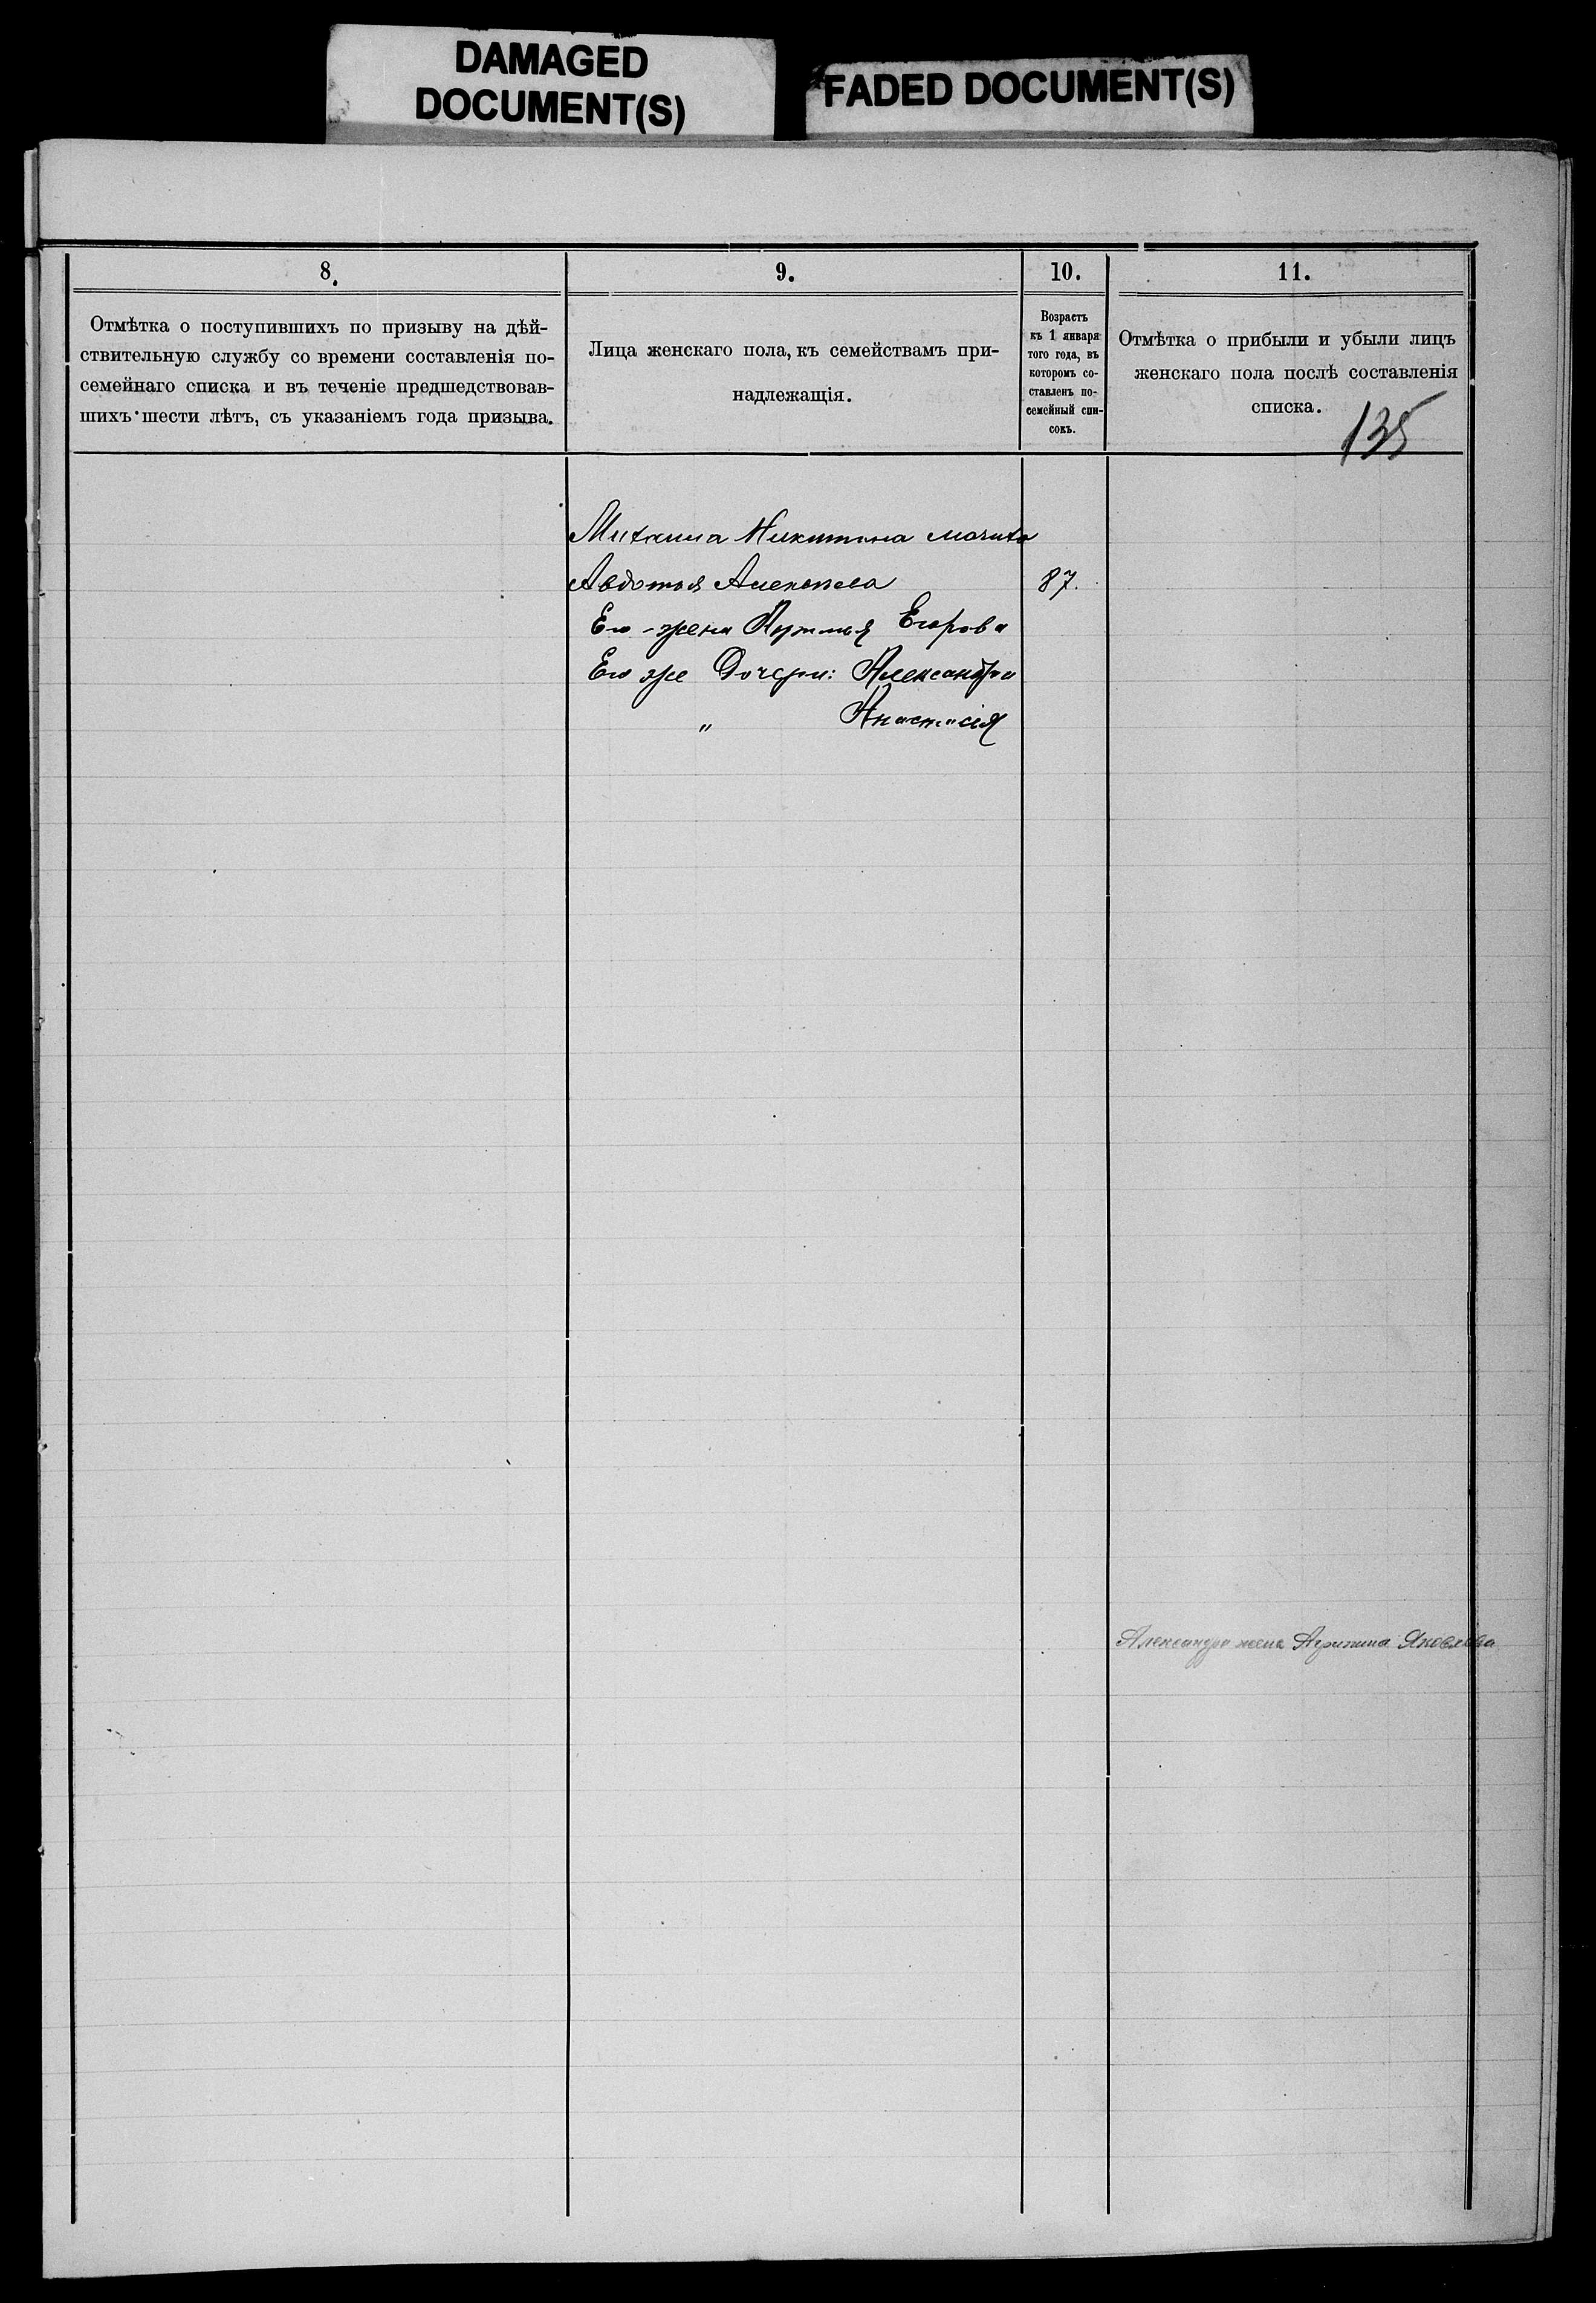 DAMAGED
DOCUMENT(S)
FADED DOCUMENT(S)
8.
Отмѣтка о поступившихъ по призыву на дѣй-
ствительную службу со времени составленія по-
семейнаго списка и въ теченіе предшедствовав-
шихъ шести лѣтъ, съ указаніемъ года призыва.
9.
Лица женскаго пола, къ семействамъ при-
надлежащія.
10.
Возрастъ
къ 1 января
того года, въ
которомъ со-
ставленъ по-
семейный спи-
сокъ.
11.
Отмѣтка о прибыли и убыли лицъ
женскаго пола послѣ составленія
списка.
135
Михаила Никитина мачиха
Авдотья Алексѣева 87.
Его жена Егорова
Его же Дочери: Александра
" Анастасія
Александра жена Агрипина Яковлева